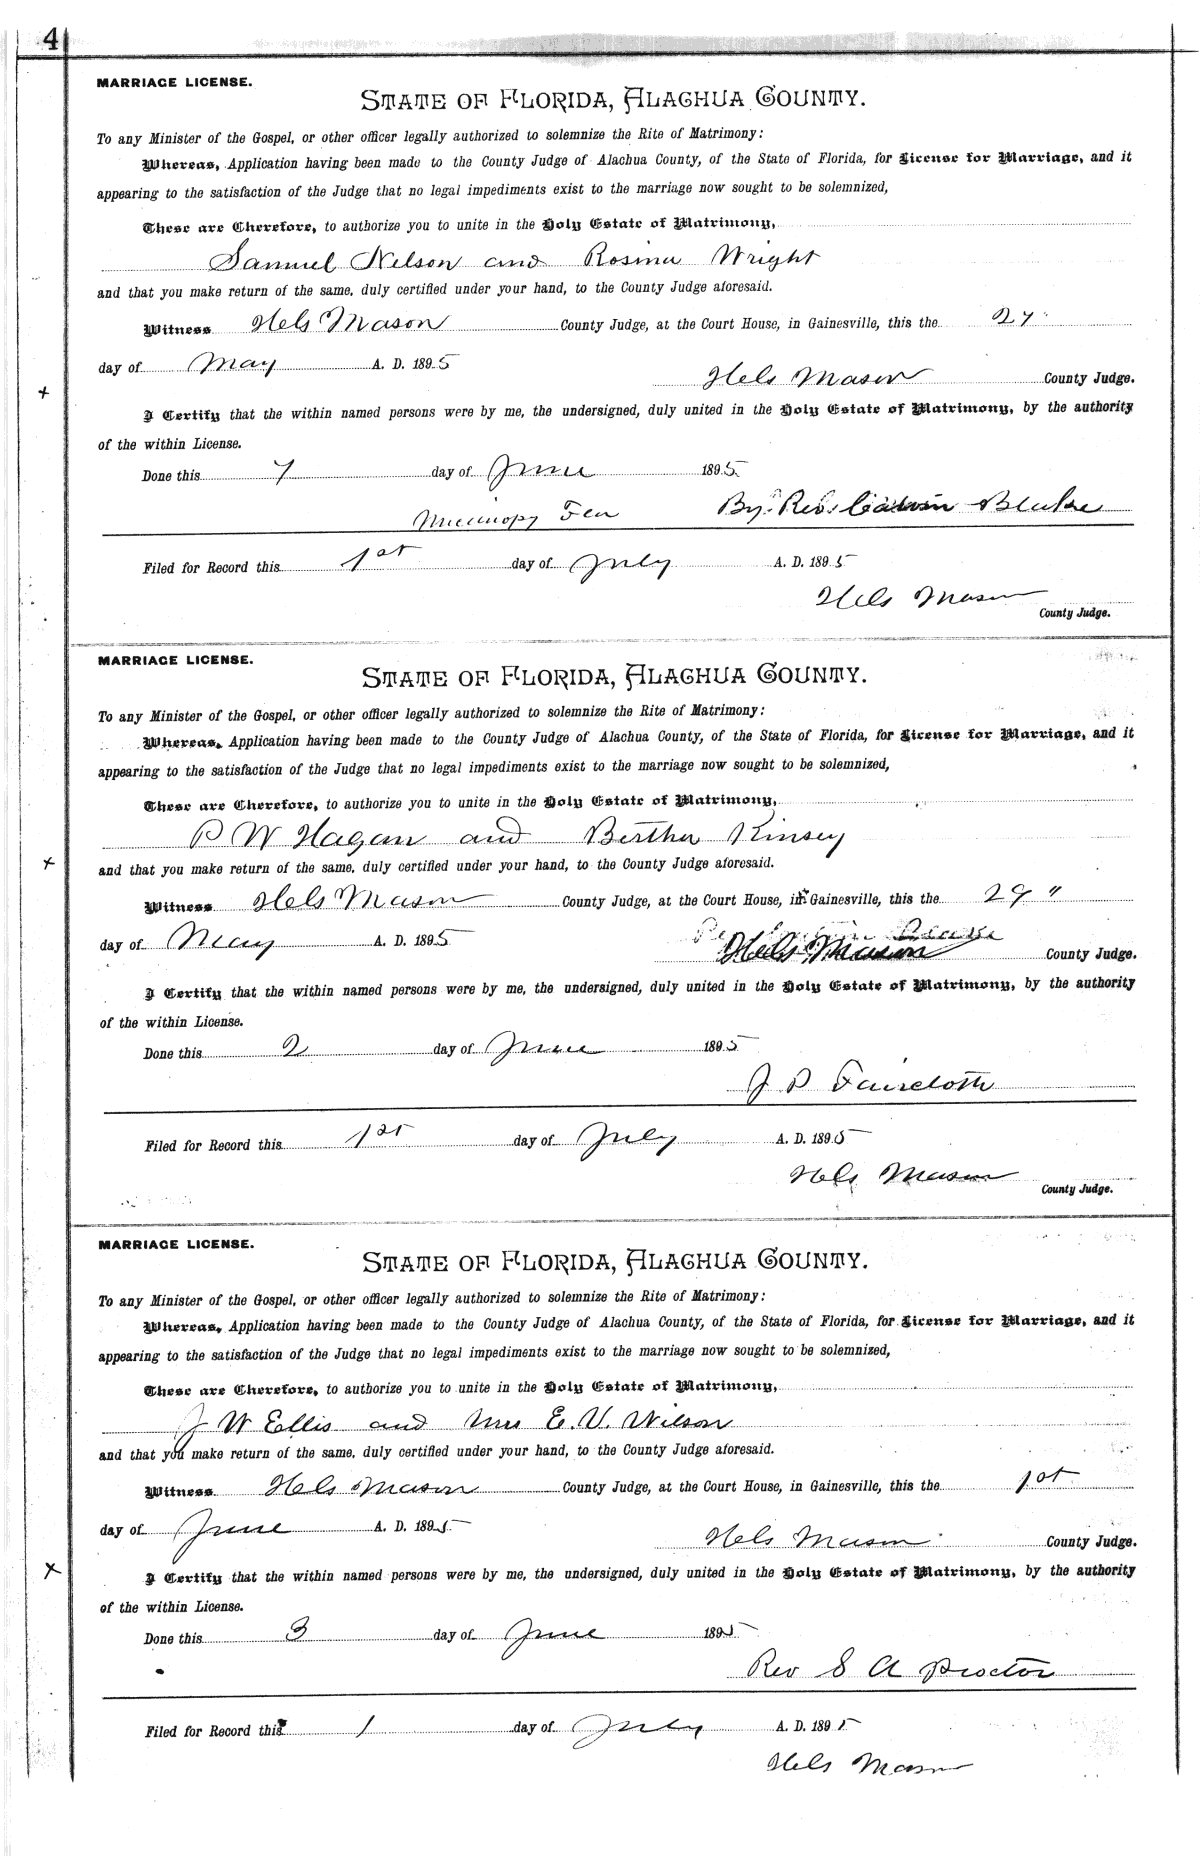 4
MARRIAGE LICENSE.
STATE OF FLORIDA, ALACHUA COUNTY.
To any Minister of the Gospel, or other officer legally authorized to solemnize the Rite of Matrimony:
Whereas, Application having been made to the County Judge of Alachua County, of the State of Florida, for License for Marriage, and it
appearing to the satisfaction of the Judge that no legal impediments exist to the marriage now sought to be solemnized,
These are Therefore, to authorize you to unite in the Holy Estate of Matrimony,
Samuel Nelson and Rosina Wright
and that you make return of the same, duly certified under your hand, to the County Judge aforesaid.
Witness Hels Mason County Judge, at the Court House, in Gainesville, this the 27
day of May A. D. 1895
Hels Mason County Judge.
I Certify that the within named persons were by me, the undersigned, duly united in the Holy Estate of Matrimony, by the authority
of the within License.
Done this 7 day of June 1895
Micanopy Fla By. Rev. Blake
Filed for Record this 1st day of July A. D. 1895
Hels Mason
County Judge.
MARRIAGE LICENSE.
STATE OF FLORIDA, ALACHUA COUNTY.
To any Minister of the Gospel, or other officer legally authorized to solemnize the Rite of Matrimony:
Whereas, Application having been made to the County Judge of Alachua County, of the State of Florida, for License for Marriage, and it
appearing to the satisfaction of the Judge that no legal impediments exist to the marriage now sought to be solemnized,
These are Therefore, to authorize you to unite in the Holy Estate of Matrimony,
P W Hagan and Bertha Kinsey
and that you make return of the same, duly certified under your hand, to the County Judge aforesaid.
Witness Hels Mason County Judge, at the Court House, in Gainesville, this the 29 "
day of May A. D. 1895
Hels Mason County Judge.
I Certify that the within named persons were by me, the undersigned, duly united in the Holy Estate of Matrimony, by the authority
of the within License.
Done this 2 day of June 1895
J P Faircloth
Filed for Record this 1st day of July A. D. 1895
Hels Mason
County Judge.
MARRIAGE LICENSE.
STATE OF FLORIDA, ALACHUA COUNTY.
To any Minister of the Gospel, or other officer legally authorized to solemnize the Rite of Matrimony:
Whereas, Application having been made to the County Judge of Alachua County, of the State of Florida, for License for Marriage, and it
appearing to the satisfaction of the Judge that no legal impediments exist to the marriage now sought to be solemnized,
These are Therefore, to authorize you to unite in the Holy Estate of Matrimony,
J W Ellis and Mrs E. V. Wilson
and that you make return of the same, duly certified under your hand, to the County Judge aforesaid.
Witness Hels Mason County Judge, at the Court House, in Gainesville, this the 1st
day of June A. D. 1895
Hels Mason County Judge.
I Certify that the within named persons were by me, the undersigned, duly united in the Holy Estate of Matrimony, by the authority
of the within License.
Done this 3 day of June 1895
Rev S A Proctor
Filed for Record this 1 day of July A. D. 1895
Hels Mason